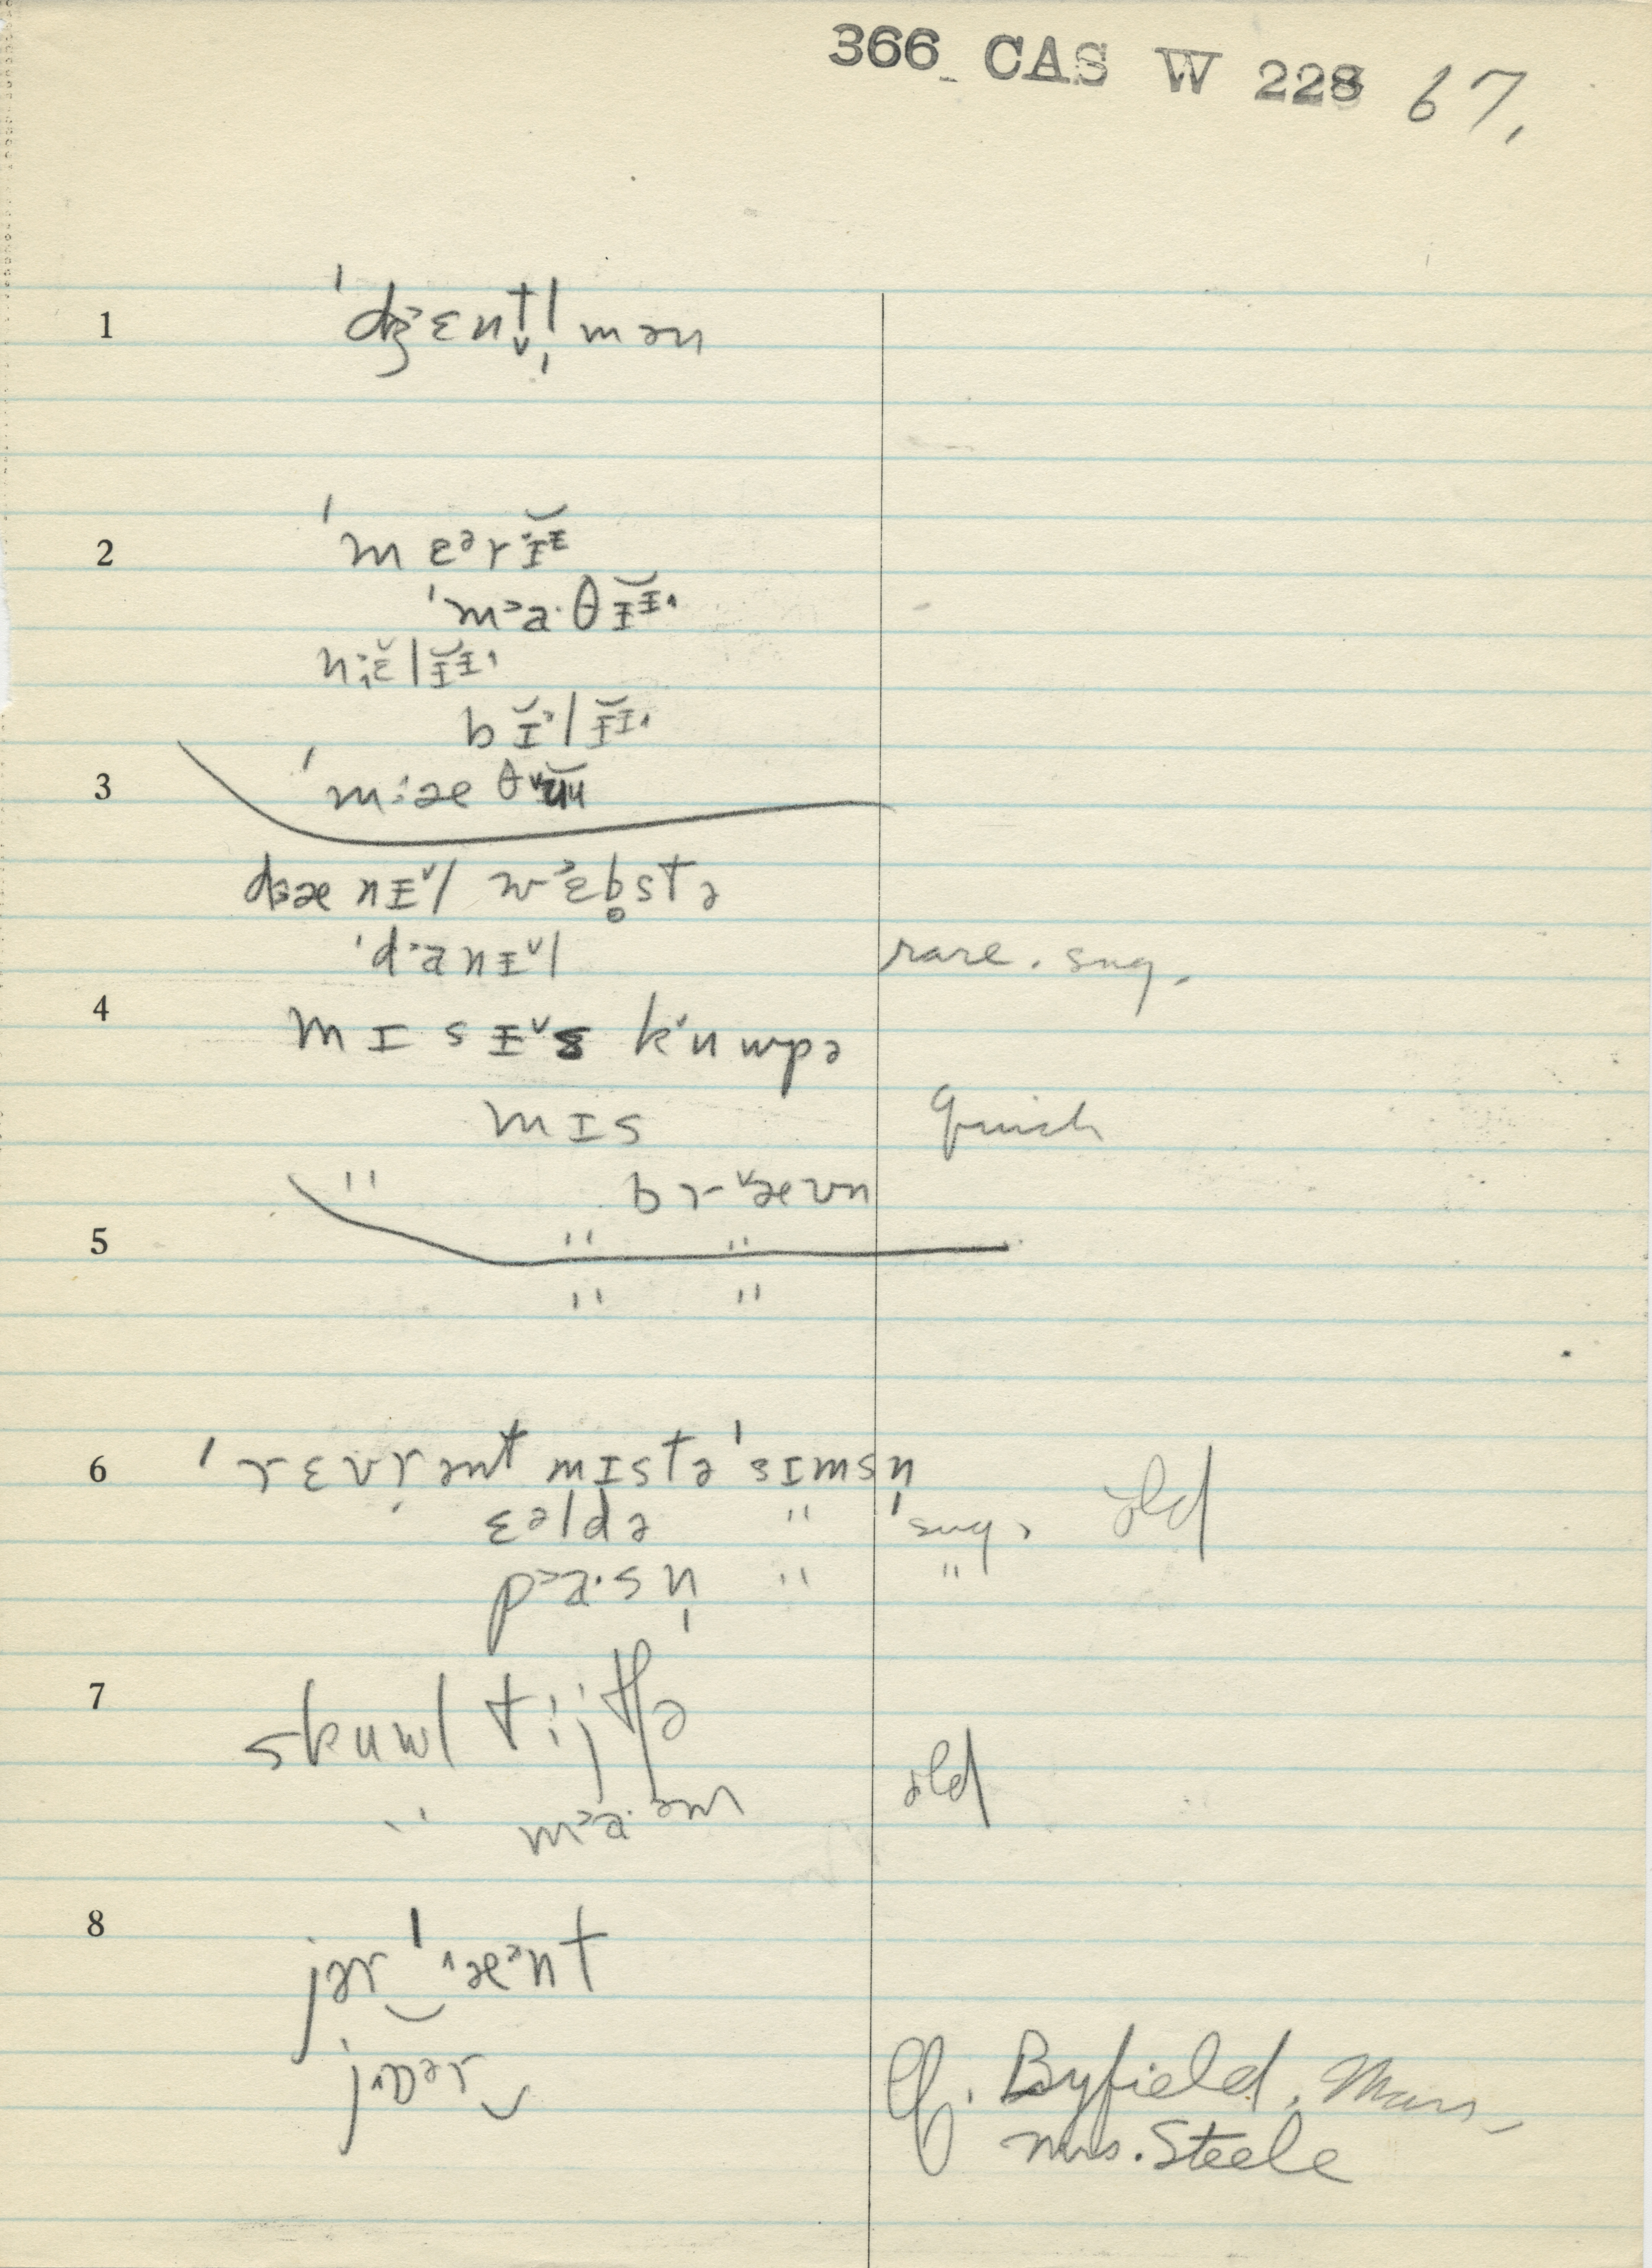 366 CAS W 228 67.
1 ˈdʒ˃ɛnt̬l̩mən
2 ˈmɛᵊrɪ̆ᵻ
ˈm˃a·θᵻ̆ᵻ
n
b
3 ˈm
dʒæ nᵻ˅l w˃ɛb̥stə
ˈd˃anᵻ˅l rare. sug.
4 mɪsᵻ˅z k˂uwpə
mɪs quick
" br˅æʊn
5 " "
" "
6 ˈrɛvr̩ənt mɪstəˈsɪmsn̩
ɛəldə " sug. old
p˃a·sn̩ " "
7 skuwl tijtʃə
" m˃a·əm old
8 jərˈ˄æᵊnt
j˄ɒər
Cf. Byfield, Mass.
Mrs. Steele